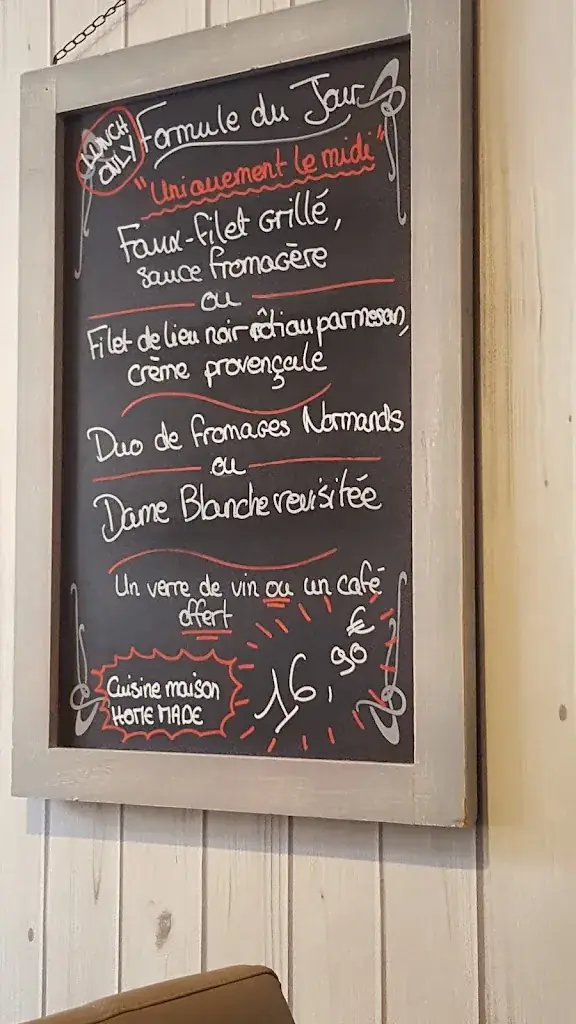 LUNCH
ONLY
Formule du Jour
"Uniquement le midi"
Faux-filet grillé,
sauce fromagère
ou
Filet de lieu noir rôti au parmesan,
crème provençale
Duo de fromages Normands
ou
Dame Blanche revisitée
Un verre de vin ou un café
offert
16,90€
Cuisine maison
HOME MADE